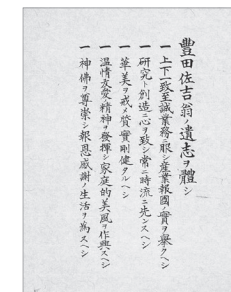 豊田佐吉翁ノ遺志ヲ體シ
一 上下一致至誠業務ニ服シ産業報國ノ實ヲ擧クヘシ
一 研究ト創造ニ心ヲ致シ常ニ時流ニ先ンスヘシ
一 華美ヲ戒メ質實剛健タルヘシ
一 温情友愛ノ精神ヲ發揮シ家庭的美風ヲ作興スヘシ
一 神佛ヲ尊崇シ報恩感謝ノ生活ヲ為スヘシ